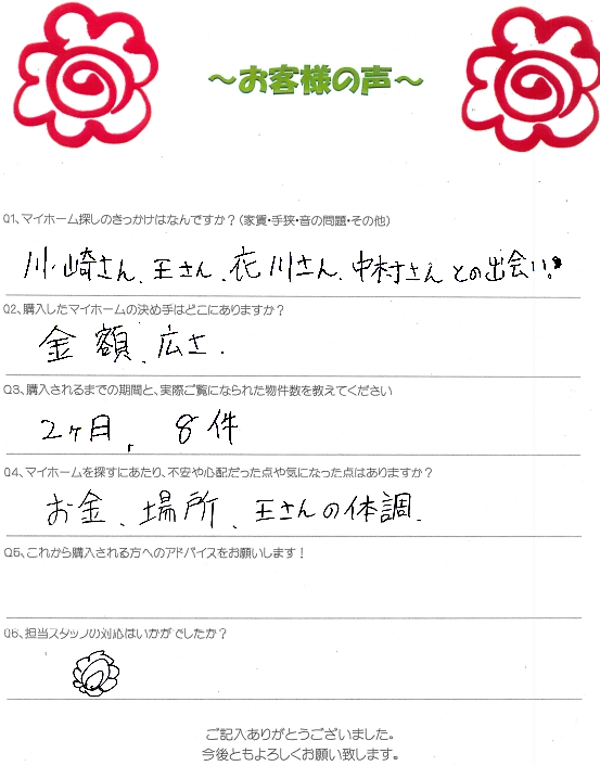 ～お客様の声～
Q1、マイホーム探しのきっかけはなんですか？（家賃・手狭・音の問題・その他）
川崎さん、王さん、衣川さん、中村さんとの出会い。
Q2、購入したマイホームの決め手はどこにありますか？
金額、広さ.
Q3、購入されるまでの期間と、実際ご覧になられた物件数を教えてください
2ヶ月, 8件
Q4、マイホームを探すにあたり、不安や心配だった点や気になった点はありますか？
お金、場所、王さんの体調.
Q5、これから購入される方へのアドバイスをお願いします！
Q6、担当スタッフの対応はいかがでしたか？
ご記入ありがとうございました。
今後ともよろしくお願い致します。